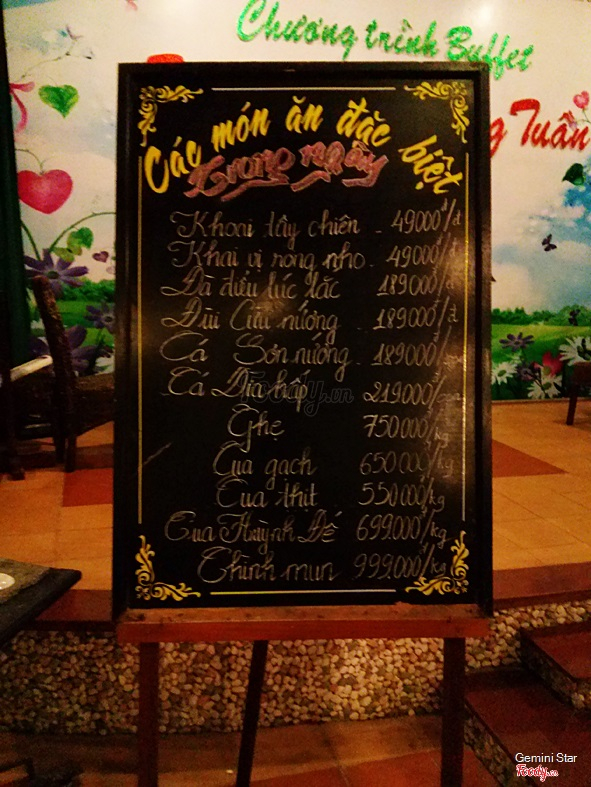 Chương trình Buffet
g Tuần
Các món ăn đặc biệt
Trong ngày
Khoai tây chiên - 49000đ/đ
Khai vị rong nho - 49000đ/đ
Đà điểu lúc lắc 189000đ/đ
Đùi Cừu nướng 189000đ/đ
Cá Sơn nướng - 189000đ/con
Cá Dìa hấp 219000đ/con
Ghẹ 750000đ/kg
Cua gạch 650000đ/kg
Cua thịt 550000đ/kg
Cua Huỳnh Đế 699.000đ/kg
Chình mun - 999.000đ/kg
Foody.vn
Gemini Star
Foody.vn